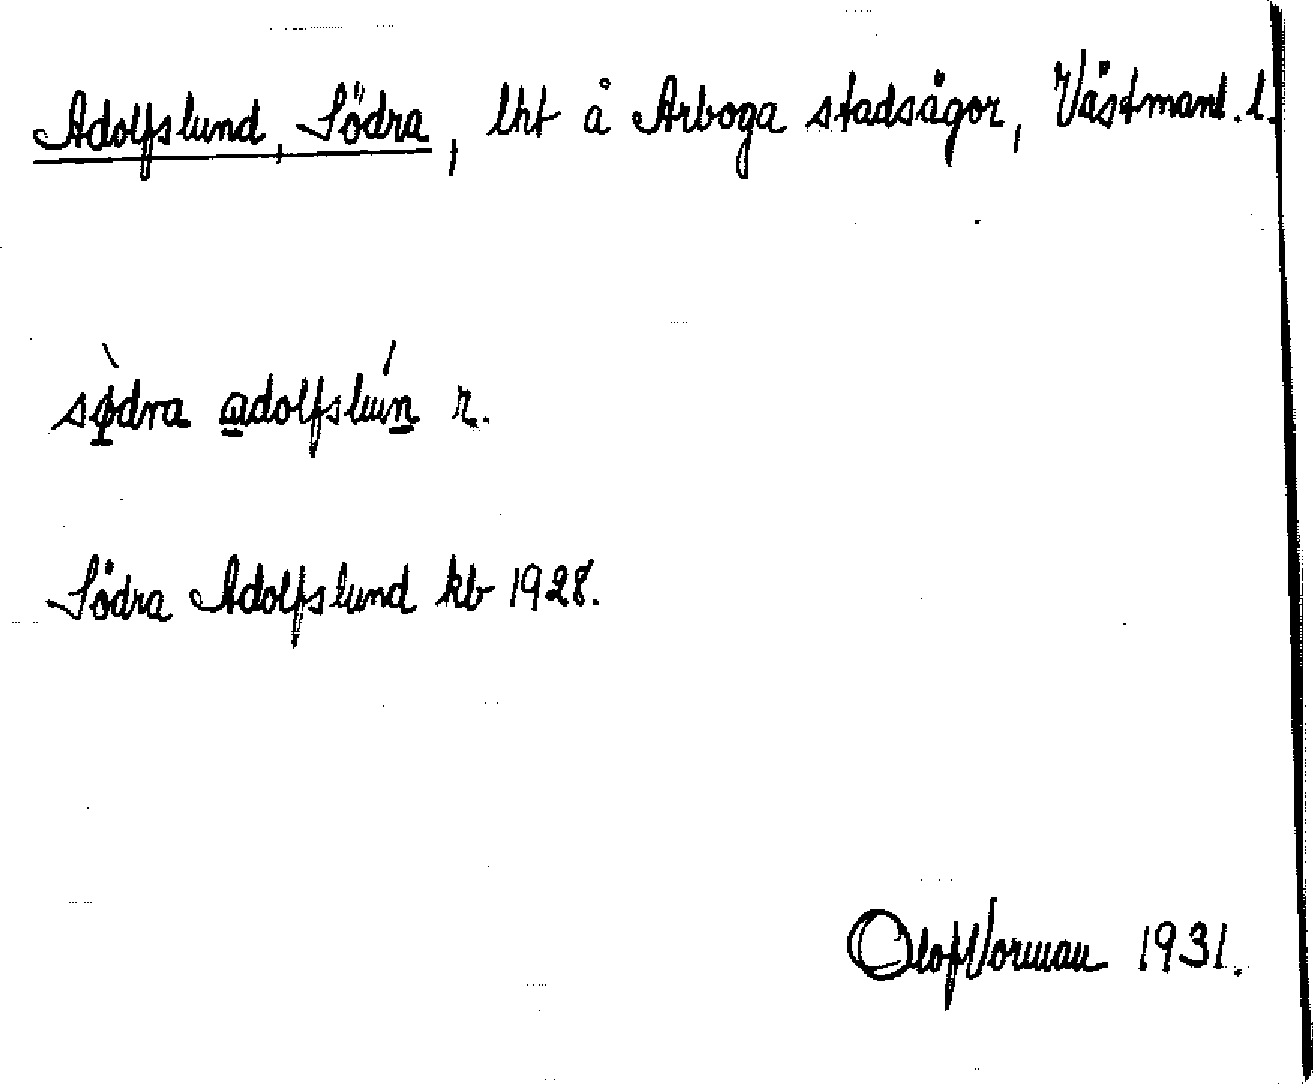 Adolfslund, Södra, lht å Arboga stadsägor, Västmanl. l.
sø̀dra adolfslún r.
Södra Adolfslund kb 1928.
Olof Vorman 1931.